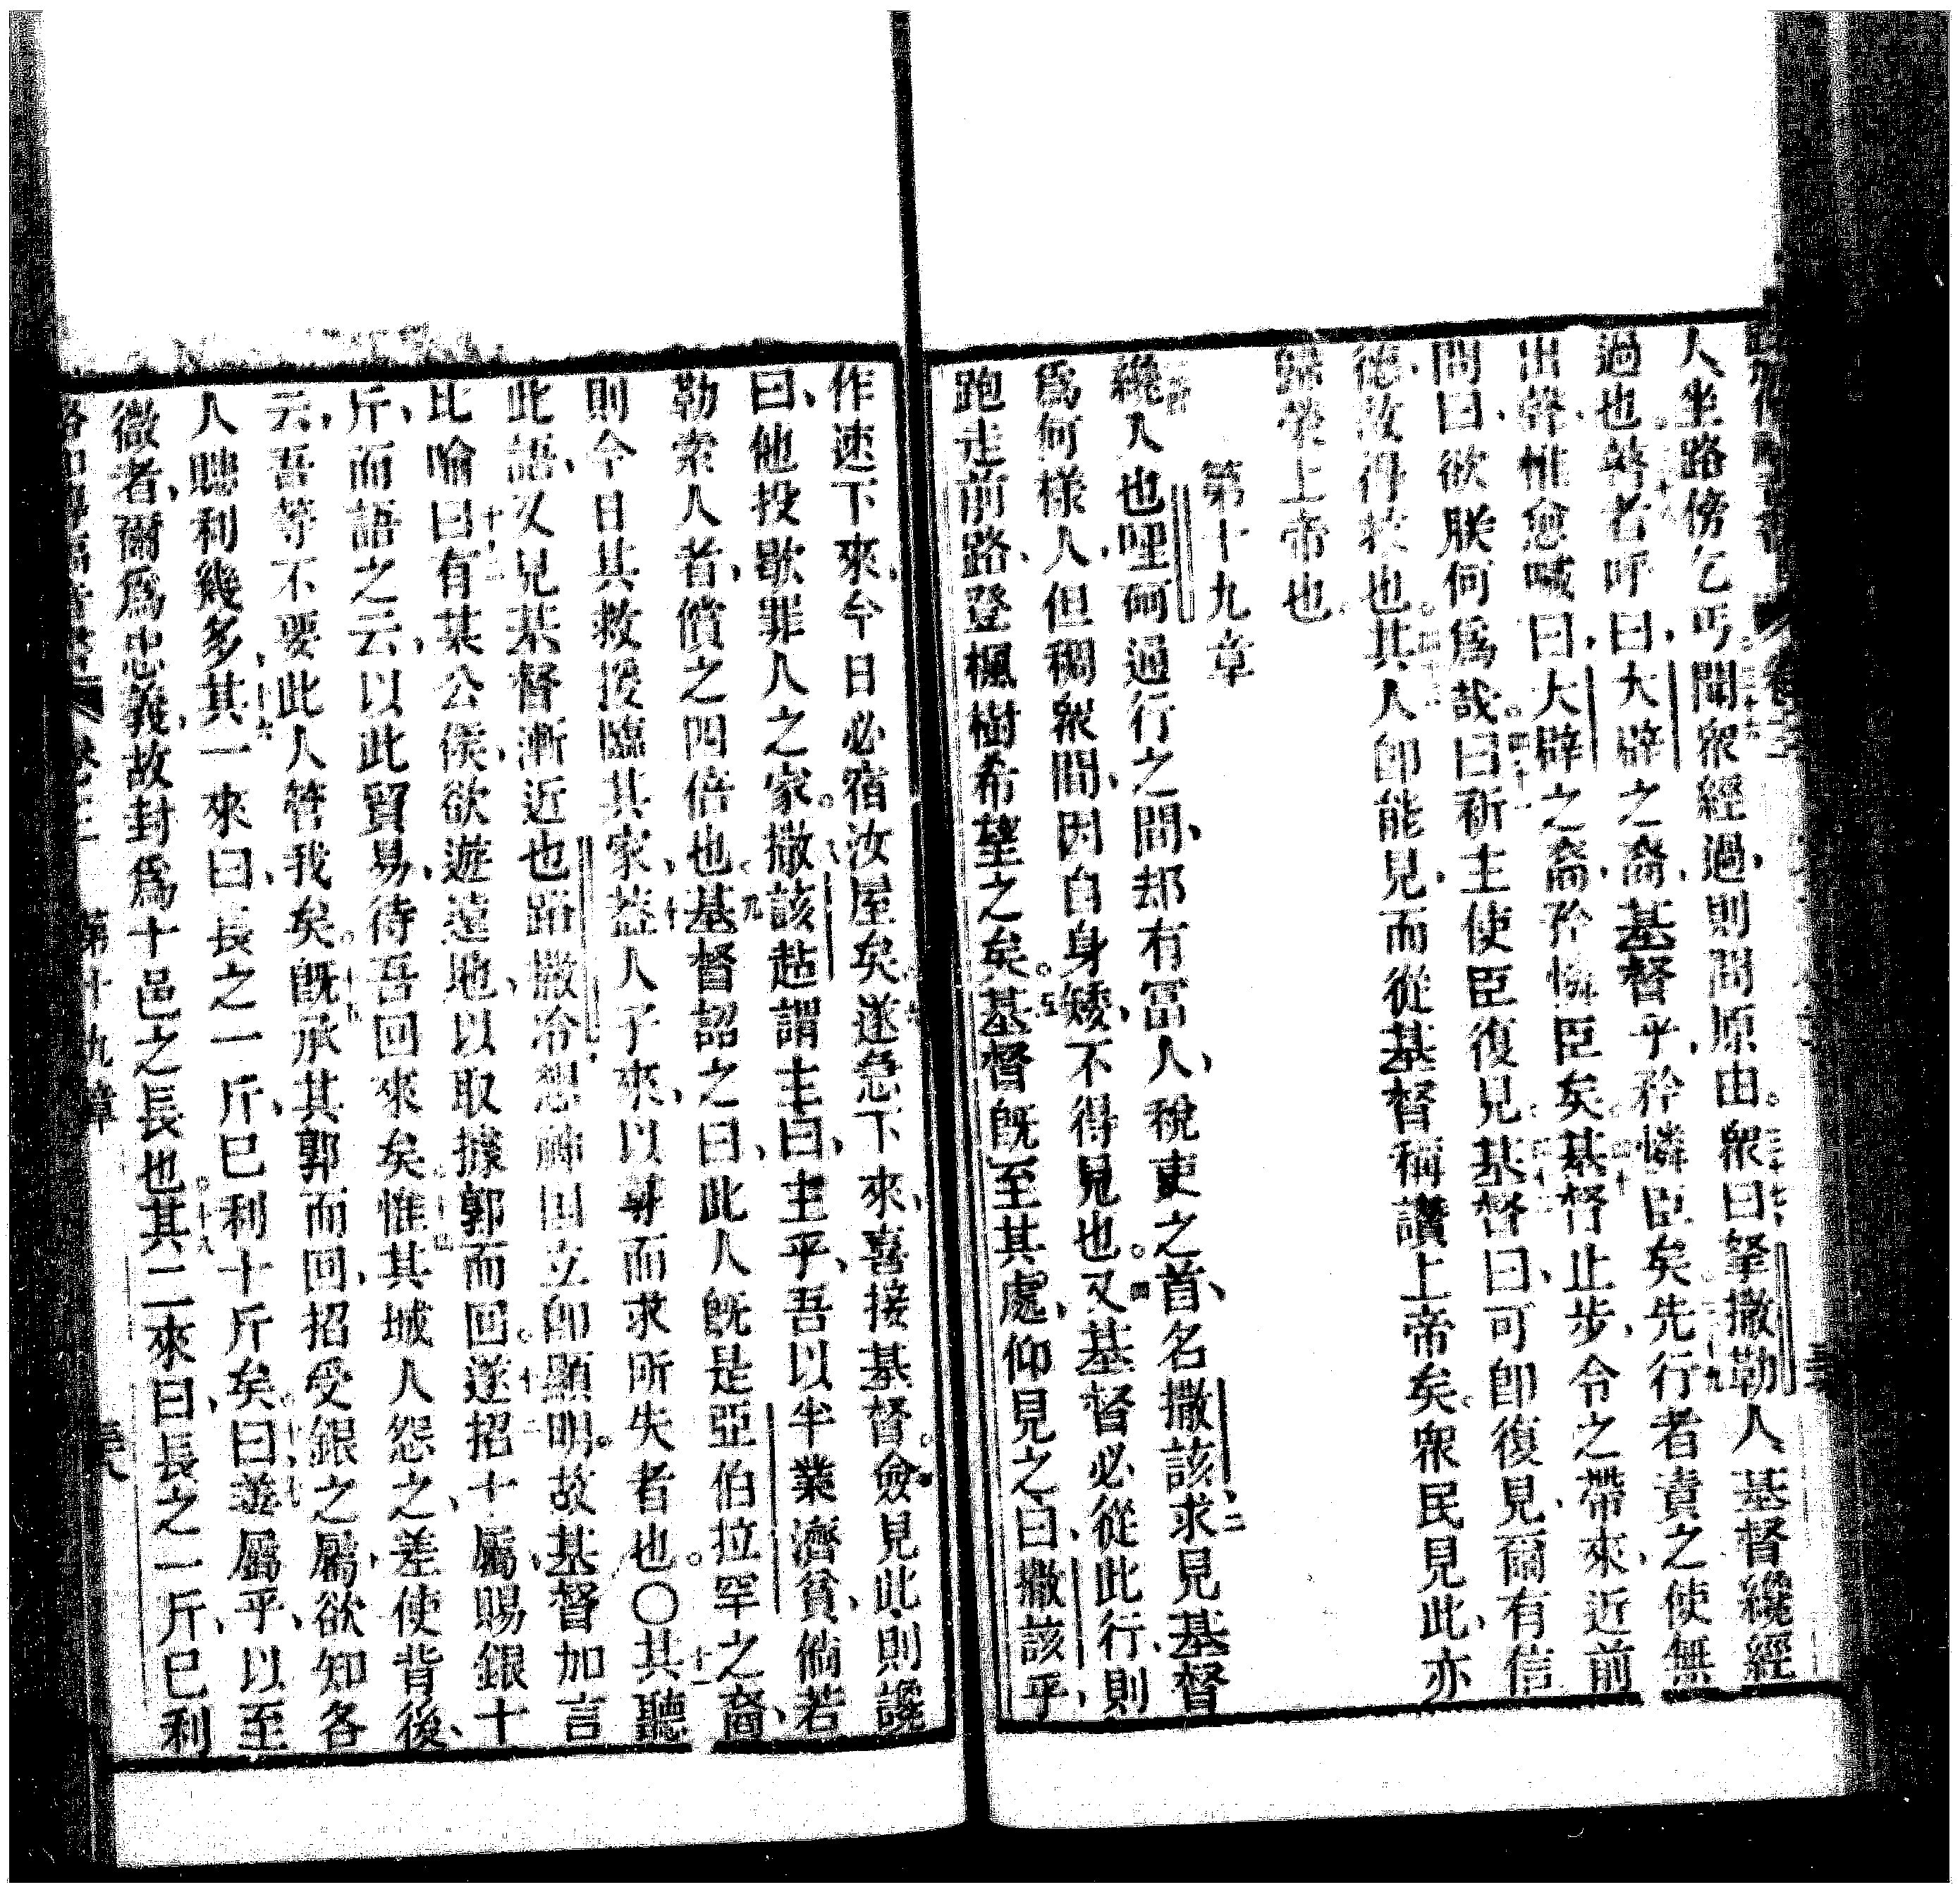 人坐路傍乞丐聞衆經過、則問原由。三十七衆曰、拏撒勒人、基督纔經
過也。三十八瞽者呼曰、大辟之裔、基督乎、矜憐臣矣。三十九先行者責之使無
出聲、惟愈喊曰、大辟之裔、矜憐臣矣。四十基督止步、令之帶來、近前
問曰、欲朕何爲哉。四十一曰、祈主使臣復見。四十二基督曰、可卽復見、爾有信
德、故得救也。四十三其人卽能見、而從基督稱讚上帝矣。衆民見此、亦
歸榮上帝也。
第十九章
纔入也哩哥通行之間、却有富人、稅吏之首、名撒該、二求見基督
爲何樣人、但稠衆間、因自身矮、不得見也。四又基督必從此行、則
跑走前路、登楓樹希望之矣。五基督旣至其處、仰見之曰、撒該乎、
作速下來、今日必宿汝屋矣。遂急下來、喜接基督。僉見此、則讒
曰、他投歇罪人之家。八撒該起謂主曰、主乎、吾以半業濟貧、倘若
勒索人者、償之四倍也。九基督詔之曰、此人旣是亞伯拉罕之裔、
則今日其救援臨其家、十葢人子來、以尋而求所失者也。〇十一其聽
此語、又見基督漸近也路撒冷、想神國立卽顯明。故基督加言
比喻曰、十二有某公侯、欲遊遠地、以取據郭而回。十三遂招十屬、賜銀十
斤、而語之云、以此貿易、待吾回來矣。十四惟其城人怨之、差使背後、
云、吾等不要此人管我矣。十五旣承其郭而回、招受銀之屬、欲知各
人賺利幾多、十六其一來曰、長之一斤、已利十斤矣。十七曰、善屬乎、以至
微者、爾爲忠義、故封爲十邑之長也。十八其二來曰、長之一斤、已利
第十九章